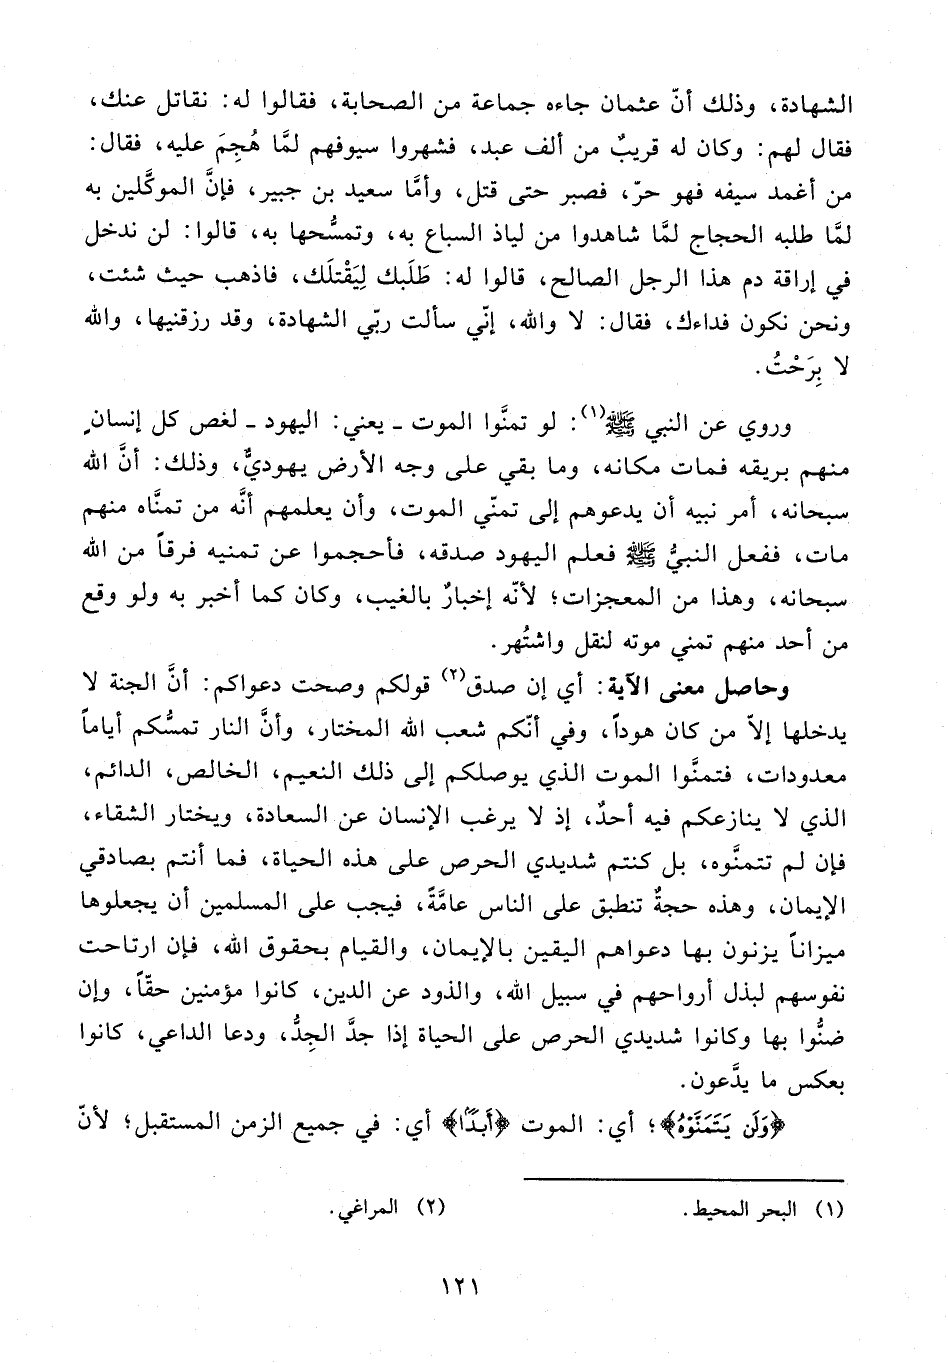 الشهادة، وذلك أنّ عثمان جاءه جماعة من الصحابة، فقالوا له: نقاتل عنك،
فقال لهم: وكان له قريبٌ من ألف عبد، فشهروا سيوفهم لمَّا هُجِمَ عليه، فقال:
من أغمد سيفه فهو حرّ، فصبر حتى قتل، وأمَّا سعيد بن جبير، فإنَّ الموكَّلين به
لمَّا طلبه الحجاج لمَّا شاهدوا من لياذ السباع به، وتمسُّحها به، قالوا: لن ندخل
في إراقة دم هذا الرجل الصالح، قالوا له: طَلَبك لِيَقْتلَك، فاذهب حيث شئت،
ونحن نكون فداءك، فقال: لا والله، إنّي سألت ربّي الشهادة، وقد رزقنيها، والله
لا بِرَحْتُ.
وروي عن النبي ﷺ(١): لو تمنَّوا الموت ـ يعني: اليهود ـ لغص كل إنسانٍ
منهم بريقه فمات مكانه، وما بقي على وجه الأرض يهوديٌّ، وذلك: أنَّ الله
سبحانه، أمر نبيه أن يدعوهم إلى تمنّي الموت، وأن يعلمهم أنَّه من تمنَّاه منهم
مات، ففعل النبيُّ ﷺ فعلم اليهود صدقه، فأحجموا عن تمنيه فرقاً من الله
سبحانه، وهذا من المعجزات؛ لأنّه إخبارٌ بالغيب، وكان كما أخبر به ولو وقع
من أحد منهم تمني موته لنقل واشتُهر.
وحاصل معنى الآية: أي إن صدق(٢) قولكم وصحت دعواكم: أنَّ الجنة لا
يدخلها إلاّ من كان هوداً، وفي أنّكم شعب الله المختار، وأنَّ النار تمسُّكم أياماً
معدودات، فتمنَّوا الموت الذي يوصلكم إلى ذلك النعيم، الخالص، الدائم،
الذي لا ينازعكم فيه أحدٌ، إذ لا يرغب الإنسان عن السعادة، ويختار الشقاء،
فإن لم تتمنَّوه، بل كنتم شديدي الحرص على هذه الحياة، فما أنتم بصادقي
الإيمان، وهذه حجةٌ تنطبق على الناس عامَّةً، فيجب على المسلمين أن يجعلوها
ميزاناً يزنون بها دعواهم اليقين بالإيمان، والقيام بحقوق الله، فإن ارتاحت
نفوسهم لبذل أرواحهم في سبيل الله، والذود عن الدين، كانوا مؤمنين حقّاً، وإن
ضنُّوا بها وكانوا شديدي الحرص على الحياة إذا جدَّ الجِدُّ، ودعا الداعي، كانوا
بعكس ما يدَّعون.
﴿وَلَن يَتَمَنَّوْهُ﴾؛ أي: الموت ﴿أَبَدًا﴾ أي: في جميع الزمن المستقبل؛ لأنّ
(١) البحر المحيط. (٢) المراغي.
١٢١